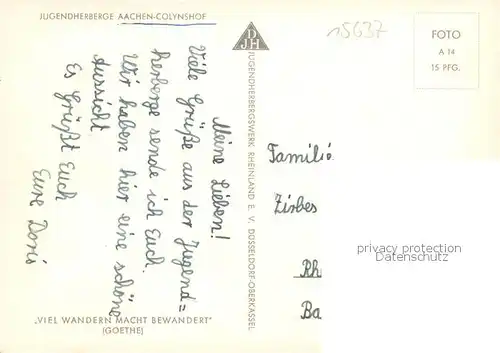 JUGENDHERBERGE AACHEN-COLYNSHOF
Meine Lieben!
Viele Grüße aus der Jugend=
herberge sende ich Euch.
Wir haben hier eine schöne
Aussicht.
Es Grüßt Euch
Eure Doris
„VIEL WANDERN MACHT BEWANDERT"
(GOETHE)
DJH
JUGENDHERBERGSWERK RHEINLAND E. V. DÜSSELDORF-OBERKASSEL
15637
FOTO
A 14
15 PFG.
Familie
Zirbes
privacy protection
Datenschutz
Rh
Ba